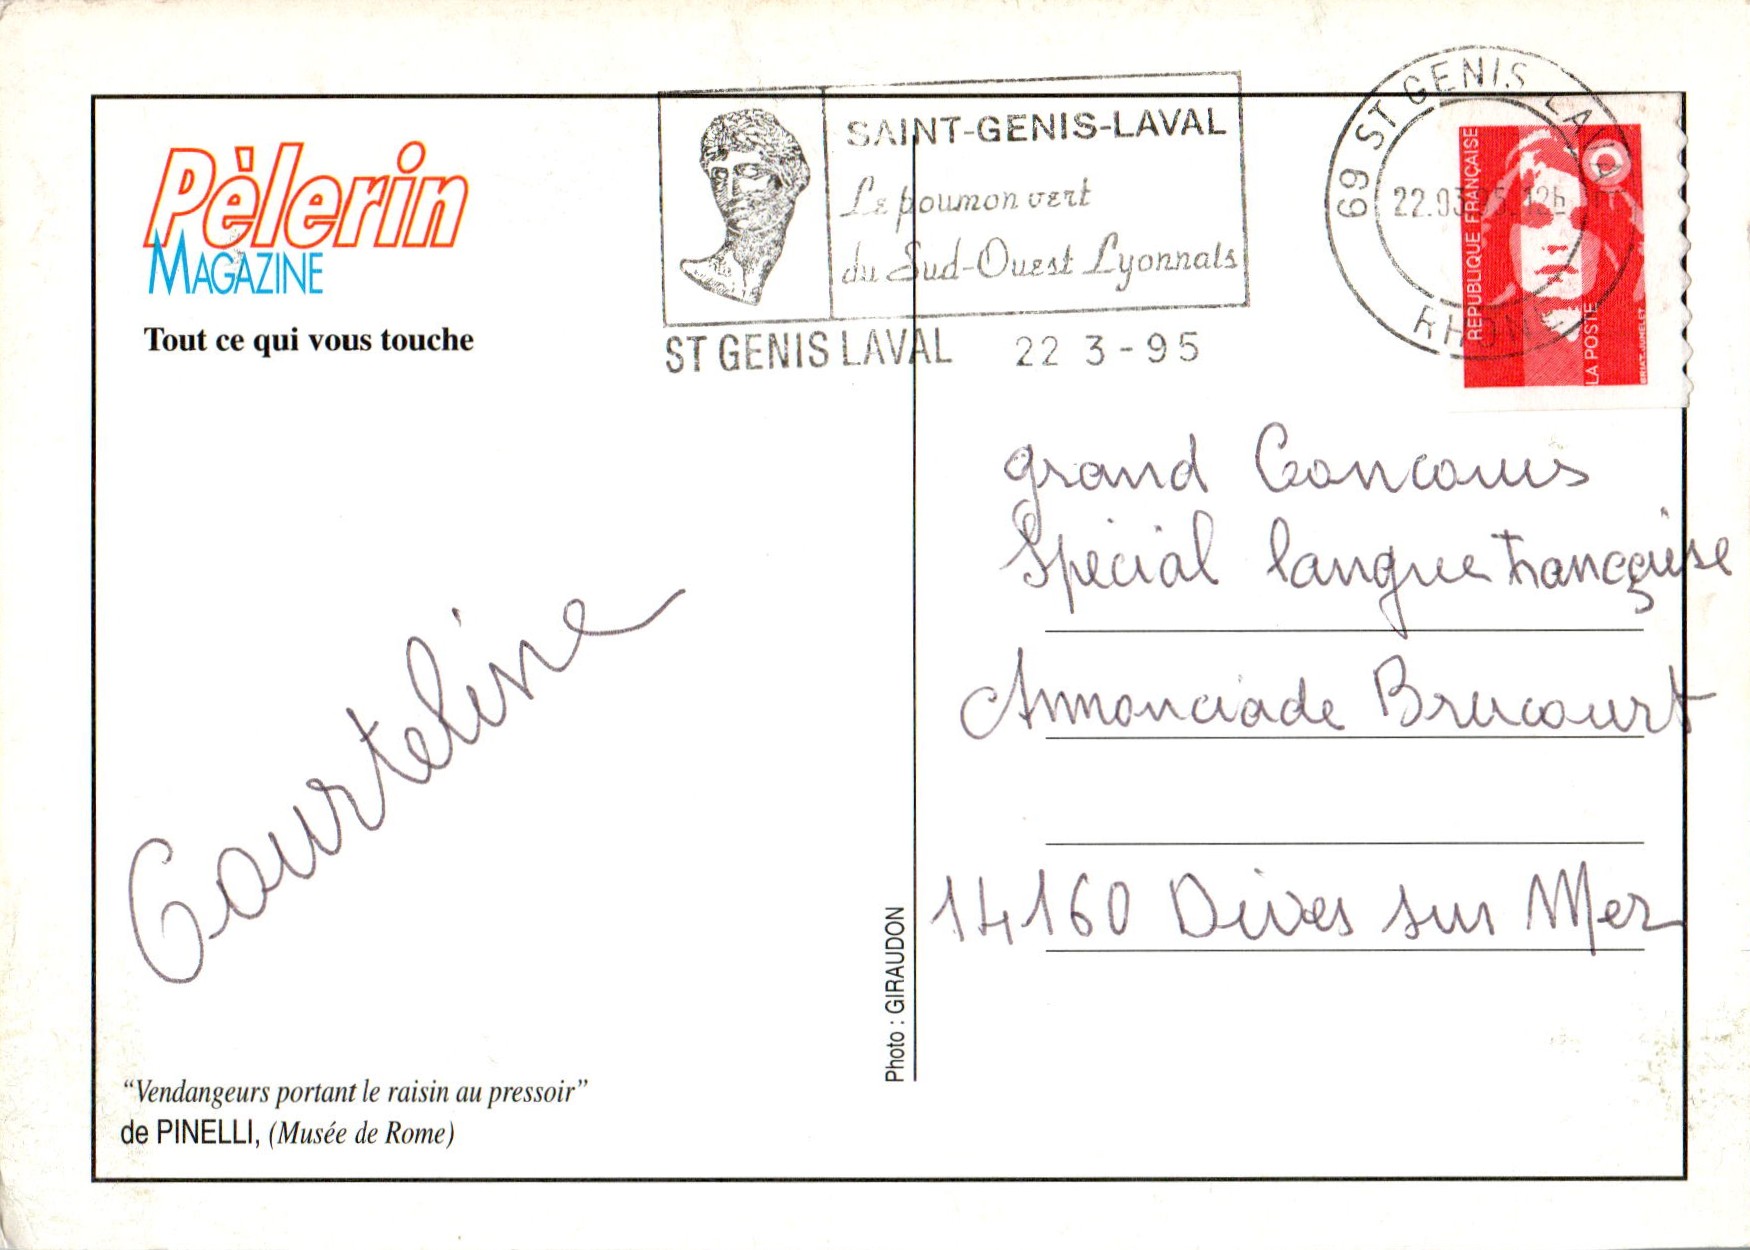 Pèlerin
MAGAZINE
Tout ce qui vous touche
SAINT-GENIS-LAVAL
Le poumon vert
du Sud-Ouest Lyonnais
ST GENIS LAVAL 22 3-95
69 ST GENIS LAVAL
22.03 95 12h
RHONE
REPUBLIQUE FRANÇAISE
LA POSTE
BRIAT-JUMELET
grand Concours
Spécial langue française
Annonciade Brucourt
14160 Dives sur Mer
Courteline
Photo : GIRAUDON
“Vendangeurs portant le raisin au pressoir”
de PINELLI, (Musée de Rome)